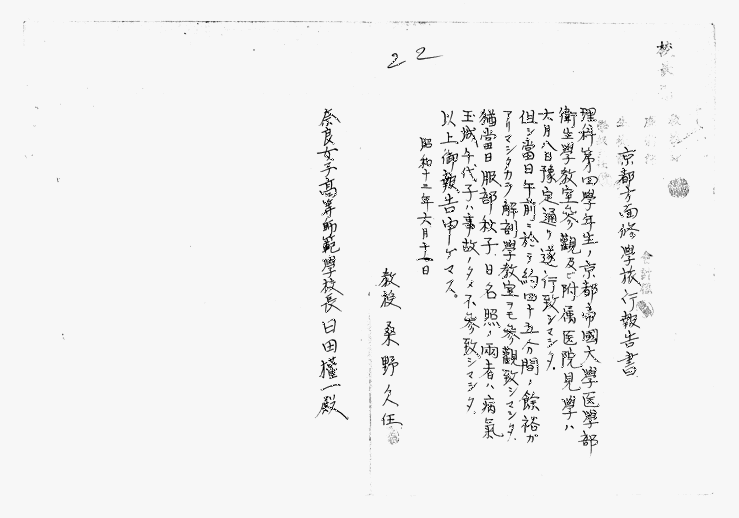 22
京都方面修學旅行報告書
理科第四學年生ノ京都帝國大學医學部
衛生學教室參觀及ビ附属医院見學ハ
六月八日豫定通リ遂行致シマシタ。
但シ當日午前ニ於テ約四十五分間ノ餘裕ガ
アリマシタカラ解剖學教室ヲモ參觀致シマシタ。
猶當日服部秋子、日名照ノ兩者ハ病氣
玉城千代子ハ事故ノタメ不參致シマシタ。
以上御報告申シゲマス。
昭和十三年六月十一日
教授 桑野久任
奈良女子高等師範學校長臼田權一殿